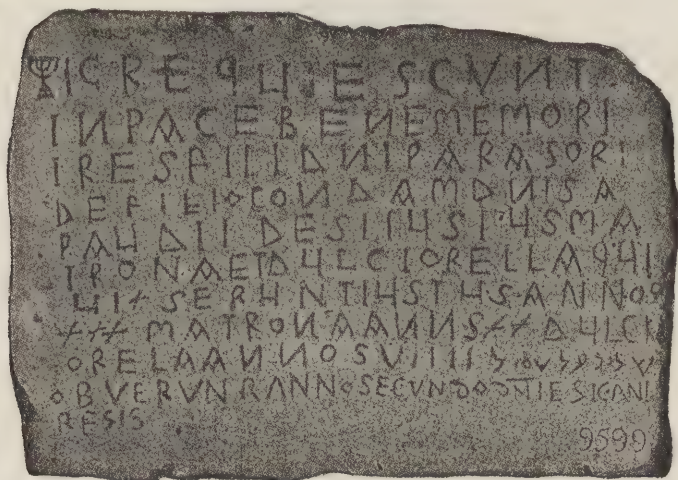 IC REQUIESCVNT
IN PACE BENEMEMORI
IRES FILI DNI PARAGORI
DE FILIO CONDAM DNI SA
PAUDI I DEST IUSTUS MA
TRONA ET DULCIORELLA QUI
UIXSERUNT IUSTUS ANNOS
XXX MATRONA ANNS XX DULCI
ORELA ANNOS VIIII שלום על ישראל
OBVERVN RANNO SECVNDO DNI EGICANI
REGIS
9599